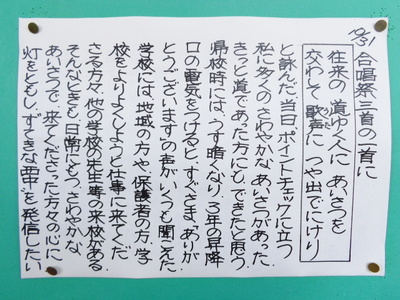 10/31 合唱祭三首の一首に
往来の 道ゆく人に あいさつを
交わして 歌声に つや出でにけり
と詠んだ。当日、ポイントチェックに立つ
私に多くのさわやかなあいさつがあった。
きっと道であった方にも、できたと思う。
帰校時には、うす暗くなり、3年の昇降
口の電気をつけると、すぐさま、"ありが
とうございます"の声がいくつも聞こえた。
学校には、地域の方や、保護者の方、学
校をよりよくしようと仕事に来てくだ
さる方々、他の学校の先生等の来校がある。
そんなときも、日常にも、さわやかな
あいさつで、来てくださった方々の心に
灯をともし、すてきな
を発信したい